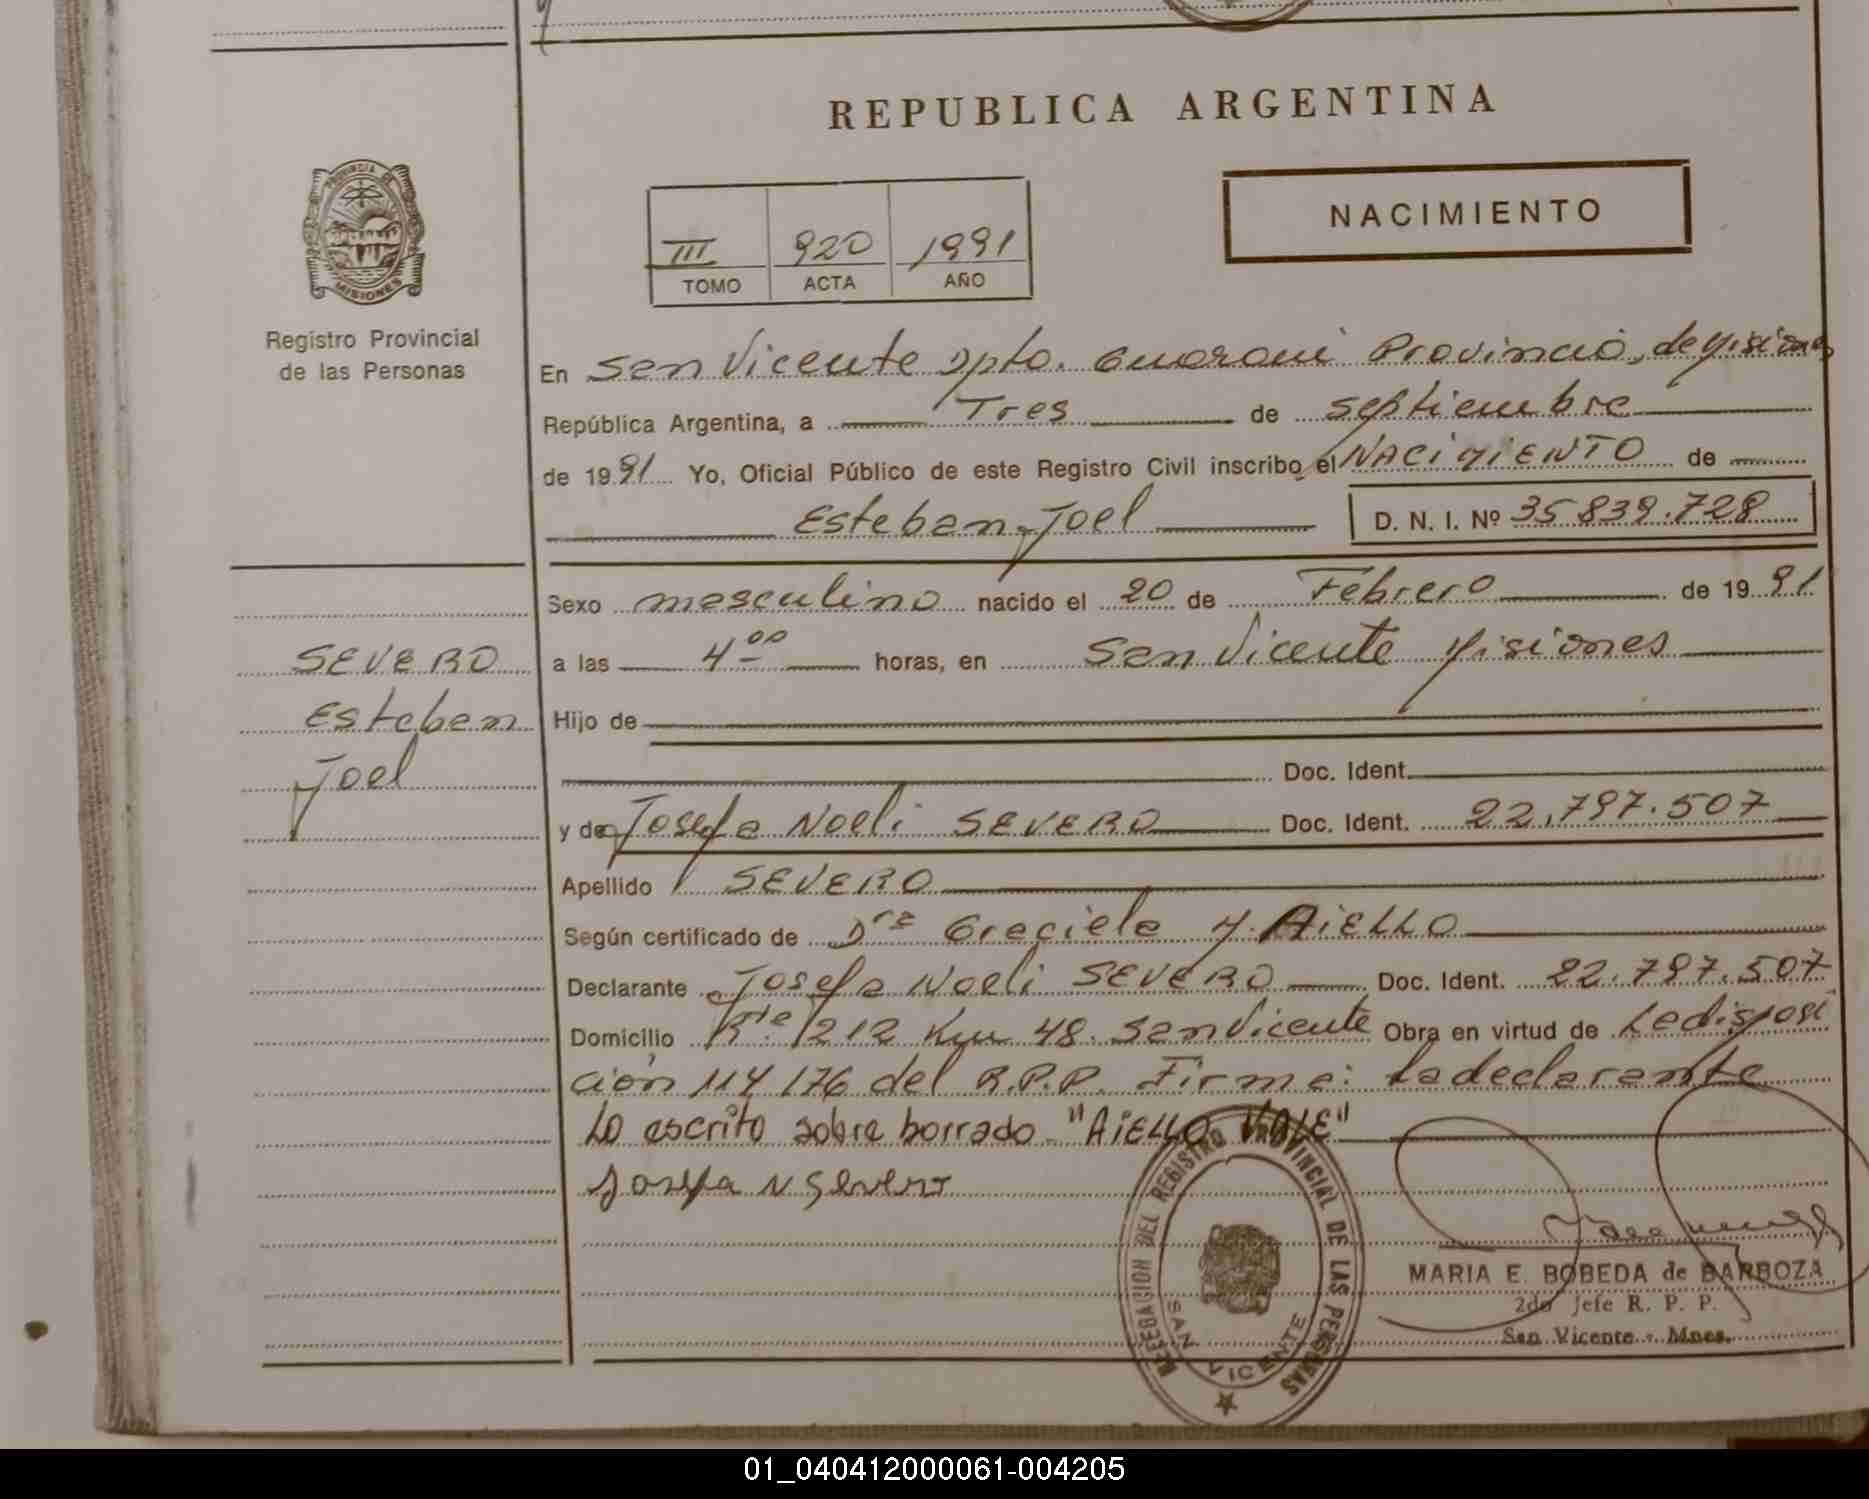 REPUBLICA ARGENTINA
PROVINCIA DE
MISIONES
Registro Provincial
de las Personas
NACIMIENTO
III 920 1991
TOMO ACTA AÑO
En San Vicente Dpto. Guarani Provincia de Misiones
República Argentina, a Tres de Septiembre
de 1991 Yo, Oficial Público de este Registro Civil inscribo el NACIMIENTO de
Esteban Joel D. N. I. Nº 35.839.728
Sexo masculino nacido el 20 de Febrero de 1991
SEVERO
Esteban
Joel
a las 4 00 horas, en San Vicente Misiones
Hijo de
Doc. Ident.
y de Josefa Noeli SEVERO Doc. Ident. 22.797.507
Apellido SEVERO
Según certificado de Dra Graciela M. AiELLO
Declarante Josefa Noeli SEVERO Doc. Ident. 22.797.507
Domicilio Rta 212 Km 48. San Vicente Obra en virtud de La disposi
ción 114/76 del R.P.P. Firma: La declarante
Lo escrito sobre borrado "AiELLO VALE"
Josefa N Severo
DELEGACION DEL REGISTRO PROVINCIAL DE LAS PERSONAS
SAN VICENTE
MARIA E. BOBEDA de BARBOZA
2do Jefe R. P. P.
San Vicente - Mnes.
01_040412000061-004205